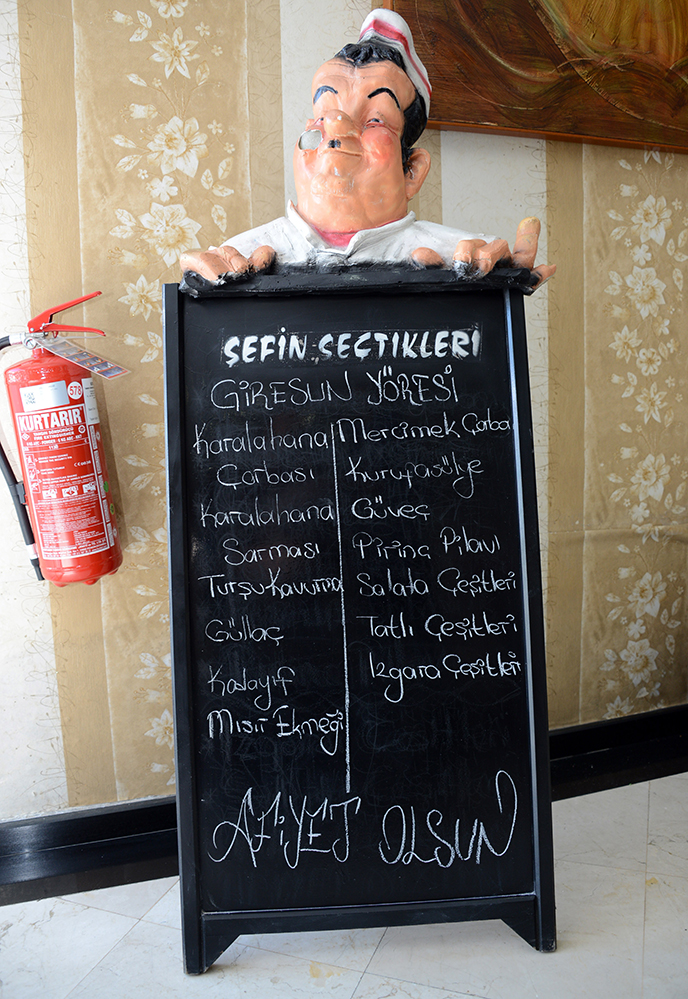 ŞEFİN SEÇTİKLERİ
GİRESUN YÖRESİ
Karalahana
Çorbası
Karalahana
Sarması
Turşu Kavurma
Güllaç
Kadayıf
Mısır Ekmeği
Mercimek Çorba
Kurufasülye
Güveç
Pirinç Pilavı
Salata Çeşitleri
Tatlı Çeşitleri
Izgara Çeşitleri
AFİYET OLSUN
578
KURTARIR